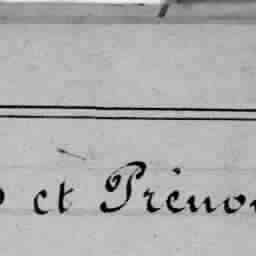 et Préno